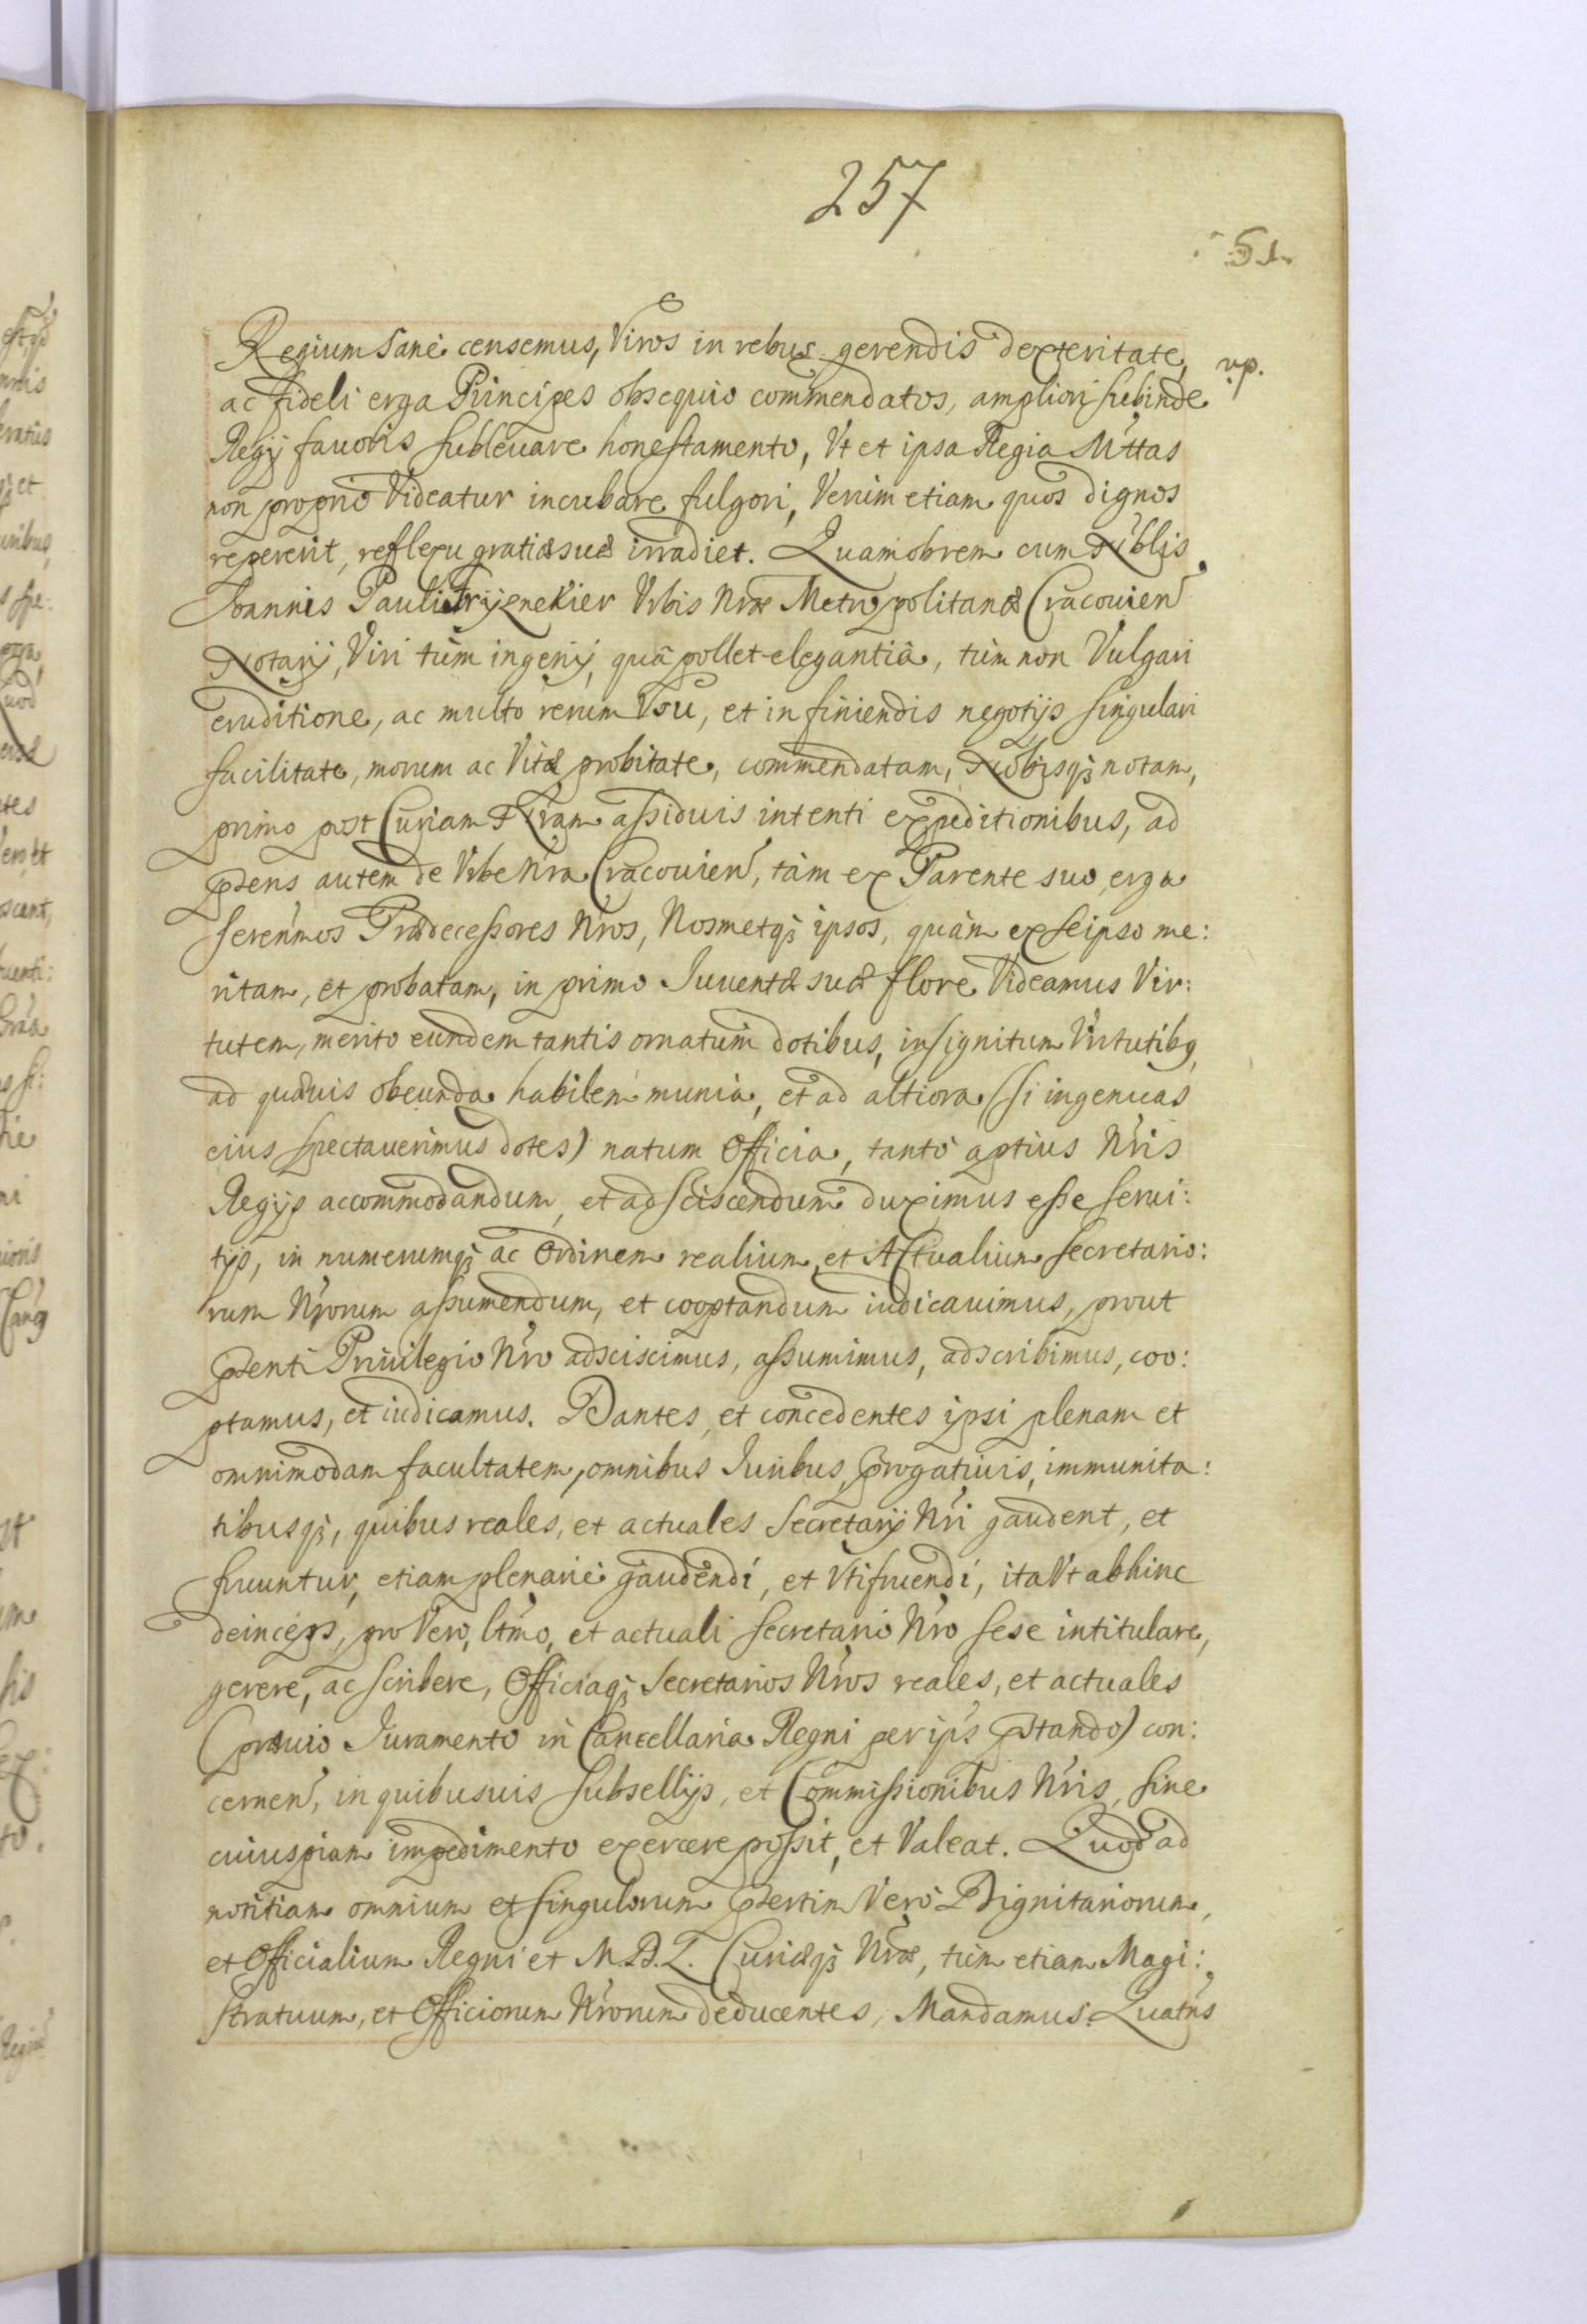 257
51
Regium sané censemus, Viros in rebus gerendis dexteritate,
vp.
ac fideli erga Principes obsequio commendatos, ampliori subinde
Regij fauoris subleuare honestamento, Vt et ipsa Regia Mttas
non proprio Videatur incubare fulgori, Verum etiam quos dignos
repererit, reflexu gratiæ suæ irradiet. Quamobrem cum Nblis
Joannis Pauli Urbis Nræ Metropolitanæ Cracouien
Notarij, Viri tùm ingenij, quâ pollet elegantiâ, tùm non Vulgari
eruditione, ac multò rerum Vsu, et in finiendis negotijs singulari
facilitate, morum ac Vitæ probitate, commendatam, Nobisq; notam,
primo post Curiam Nram assiduis intenti expeditionibus, ad
pñens autem de Vrbe Nra Cracouien, tàm ex Parente suo, erga
Serenmos Prædecessores Nros, Nosmetq; ipsos, quàm ex seipso me:
ritam, et probatam, in primo Juuentæ suæ flore Videamus Vir:
tutem, merito eundem tantis ornatum dotibus, insignitum Virtutibq,
ad quæuis obeunda habilem munia, et ad altiora (si ingenuas
eius spectauerimus dotes) natum Officia, tantò aptius Nris
Regijs accommodandum, et adsciscendum duximus esse serui:
tijs, in numerumq; ac Ordinem realium, et Actualium Secretario:
rum Nrorum assumendum, et cooptandum iudicauimus, prout
pñenti Priuilegio Nro adsciscimus, assumimus, adscribimus, coo:
ptamus, et iudicamus. Dantes, et concedentes ipsi plenam et
omnimodam facultatem, omnibus Juribus, prrogatiuis, immunita:
tibusq;, quibus reales, et actuales Secretarij Nri gaudent, et
fruuntur, etiam plenariè gaudendi, et Vtifruendi, ita Vt abhinc
deinceps, pro Vero, ltmo, et actuali Secretario Nro sese intitulare,
gerere, ac scribere, Officiaq; Secretarios Nros reales, et actuales
(præuio Juramento in Cancellaria Regni per ips pstando) con:
cernen, in quibusuis Subsellijs, et Commissionibus Nris, sine
cuiuspiam impedimento exercere possit, et Valeat. Quod ad
notitiam omnium et singulorum psertim Verò Dignitariorum,
et Officialium Regni et M.D.L. Curiæq; Nræ, tùm etiam Magi:
stratuum, et Officiorum Nrorum deducentes, Mandamus. Quatns